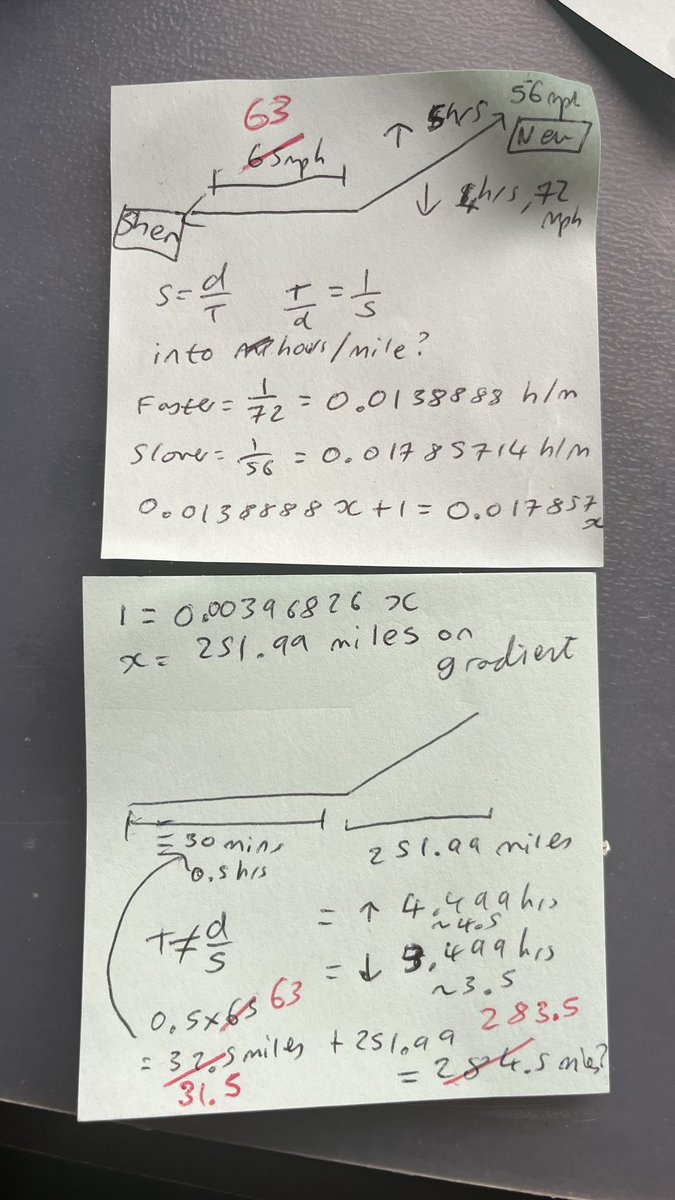 63
65mph
↑ 5hrs
56mph
New
Shen
↓ 4hrs, 72 mph
S = d/T    T/d = 1/S
into hours/mile?
Faster = 1/72 = 0.0138888 h/m
Slower = 1/56 = 0.01785714 h/m
0.0138888 x + 1 = 0.017857 x
1 = 0.00396826 x
x = 251.99 miles on gradient
= 30 mins
0.5hrs
251.99 miles
= ↑ 4.499hrs
~4.5
T ≠ d/S
= ↓ 3.499hrs
~3.5
0.5 x 65 63
= 32.5 miles + 251.99
31.5
283.5
= 284.5 miles?